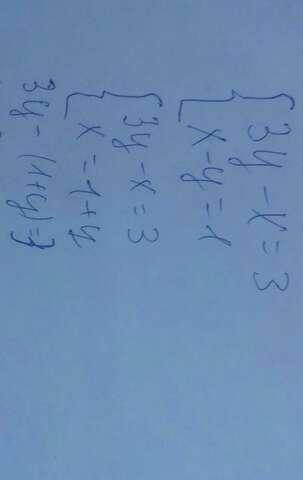 {3y - x = 3
x - y = 1
{3y - x = 3
x = 1 + y
3y - (1+y) = 3